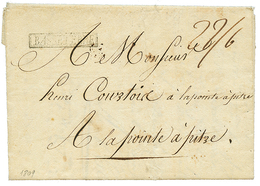 BASSE-TERRE
22/6
A Monsieur
henri Courtois à la pointe à pitre
A la pointe à pitre.